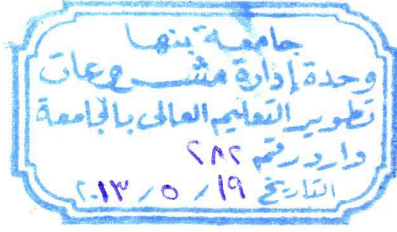 جامعة بنها
وحدة إدارة مشروعات
تطوير التعليم العالى بالجامعة
وارد رقم ٢٨٢
التاريخ ١٩ / ٥ / ٢٠١٣